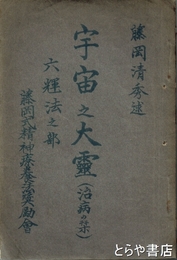 藤岡清秀述
宇宙之大靈(治病の本)
六輝法之部
藤岡式精神療養法奨励會
古書
とらや書店